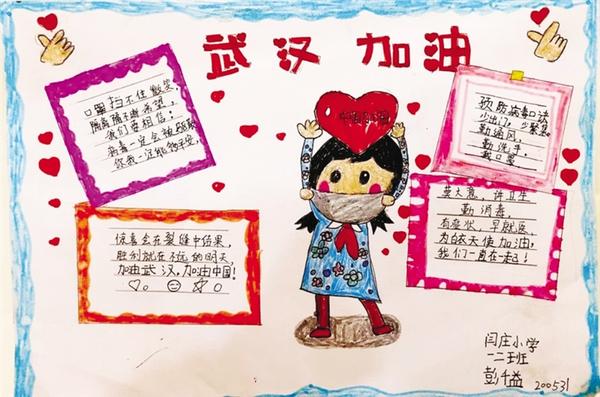 武汉 加油
口罩挡不住微笑,
隔离隔不断希望,
我们要相信:
病毒一定会被
你我一定能够平安。
预防病毒口诀
少出门,少聚集。
勤通风,
勤洗手,
戴口罩
惊喜会在裂缝中结果,
胜利就在不远的明天,
加油武汉,加油中国!
莫大意,讲卫生
勤消毒,
有症状,早就医,
为白衣天使加油,
我们一直在一起!
闫庄小学
一二班
彭千益
200531